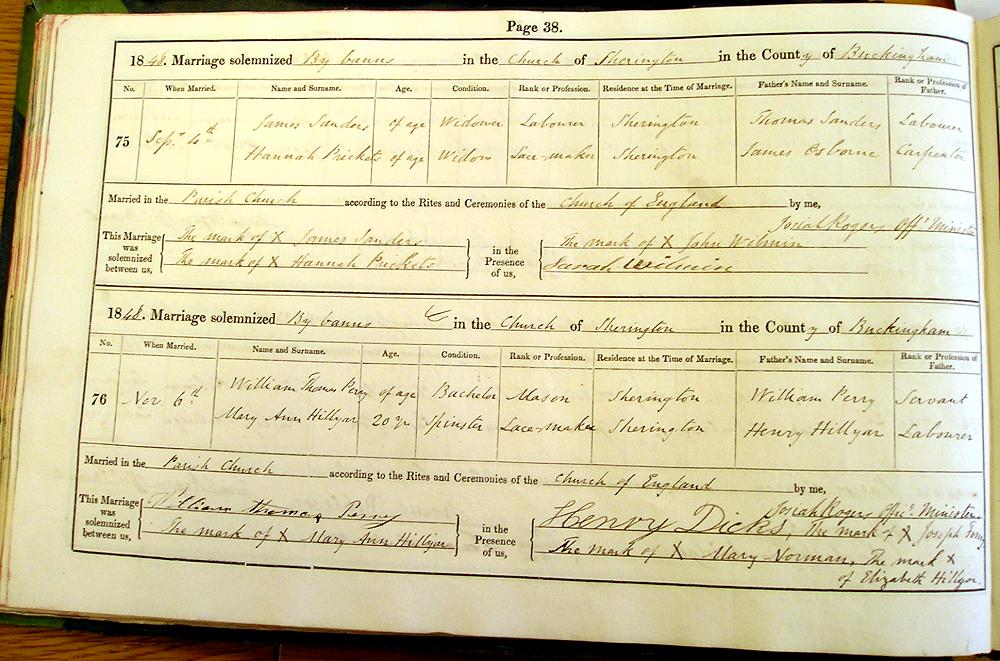 Page 38.
1848. Marriage solemnized By banns in the Church of Sherington in the County of Buckingham
No. When Married. Name and Surname. Age. Condition. Rank or Profession. Residence at the Time of Marriage. Father's Name and Surname. Rank or Profession of Father.
75 Sepr 4th James Sanders of age Widower Labourer Sherington Thomas Sanders Labourer
Hannah Prickets of age Widow Lace-maker Sherington James Osborne Carpenter
Married in the Parish Church according to the Rites and Ceremonies of the Church of England by me,
Josiah Rogers Offg Minister
This Marriage was solemnized between us, The mark of X James Sanders in the Presence of us, The mark of X John Wilmin
The mark of X Hannah Prickets Sarah Wilmin
1848. Marriage solemnized By banns in the Church of Sherington in the County of Buckingham
No. When Married. Name and Surname. Age. Condition. Rank or Profession. Residence at the Time of Marriage. Father's Name and Surname. Rank or Profession of Father.
76 Nov. 6th William Thomas Perry of age Bachelor Mason Sherington William Perry Servant
Mary Ann Hillyar 20 yr Spinster Lace-maker Sherington Henry Hillyar Labourer
Married in the Parish Church according to the Rites and Ceremonies of the Church of England by me,
Josiah Rogers Offg Minister
This Marriage was solemnized between us, William thomas Perry in the Presence of us, Henry Dicks, The mark of X Joseph
The mark of X Mary Ann Hillyar The mark of X Mary Norman, The mark X
of Elizabeth Hillyar.